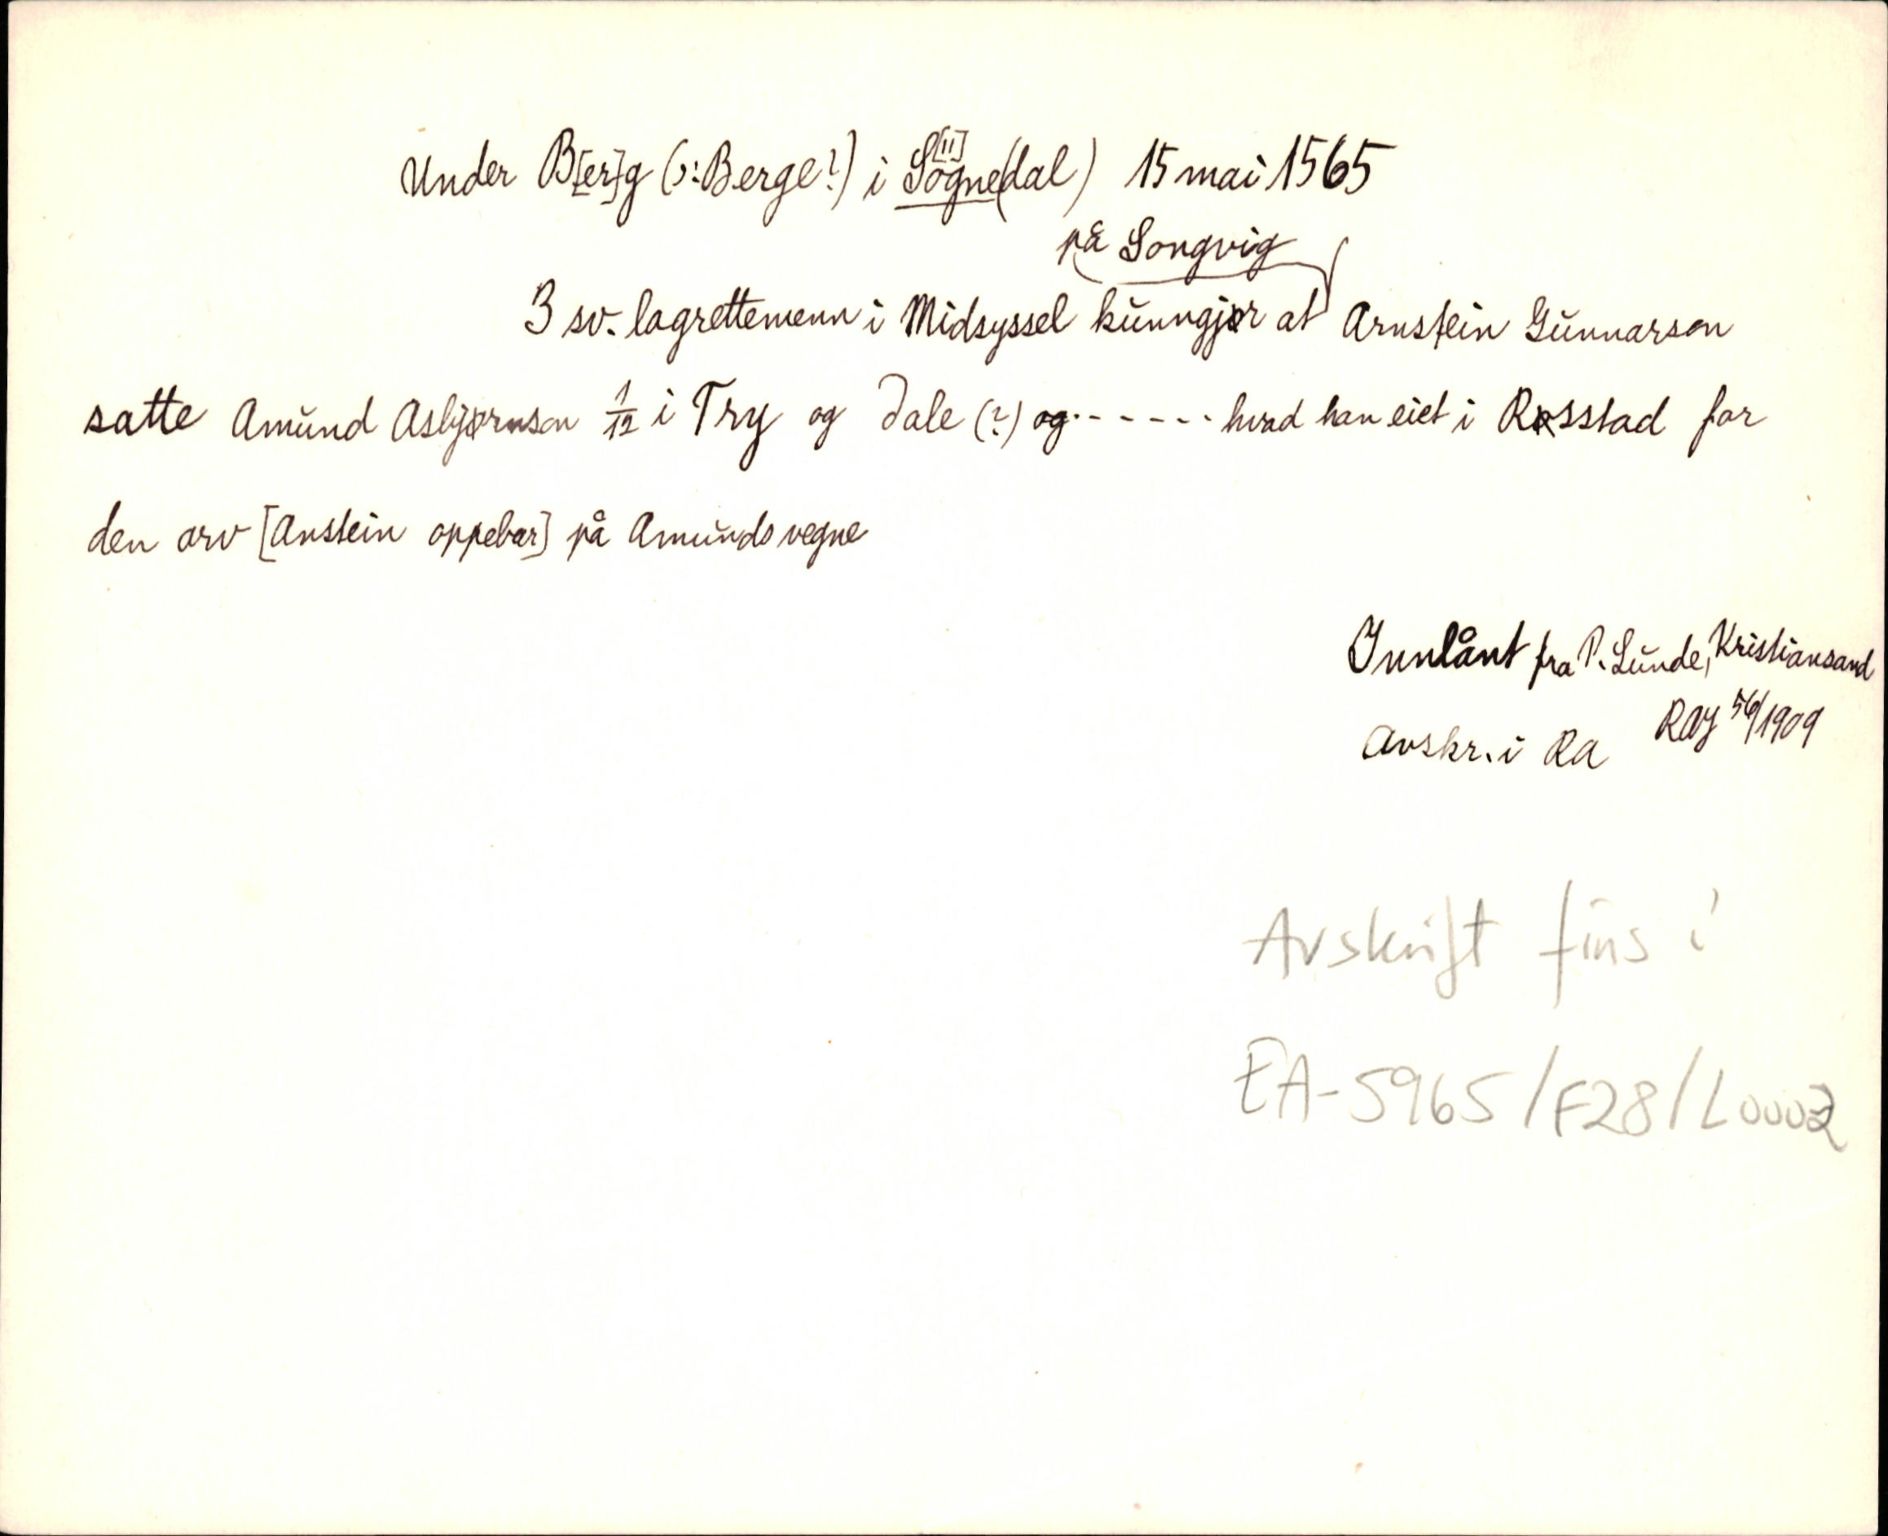 Under B[er]g (ɔ: Berge?) i Sogne(dal) 15 mai 1565
["]
på Songvig
3 sv. lagrettemenn i Midsyssel kunngjør at Arnstein Gunnarson
satte Amund Asbjørnson 1/12 i Try og Dale (?) og - - - - - - hvad han eiet i Rosstad for
den arv [Anstein oppebar] på Amunds vegne
Innlånt fra P. Lunde, Kristiansand
Avskr. i RA RAJ 56/1909
Avskrift fins i
EA-5965/F28/L0002